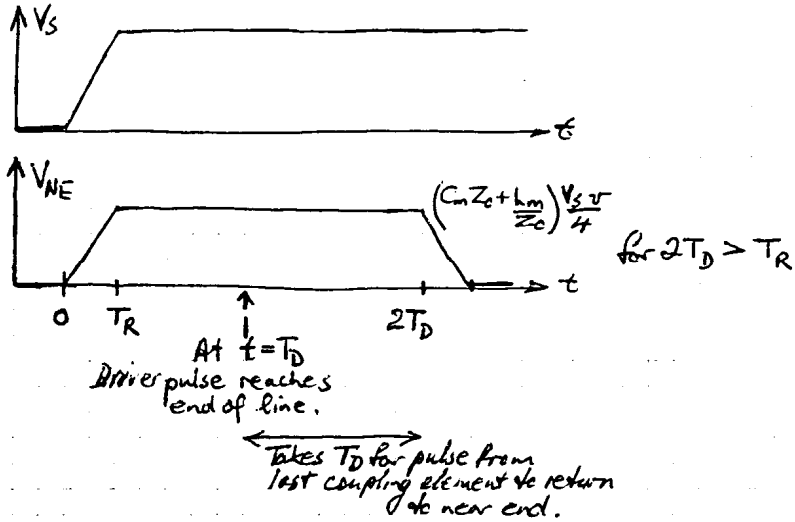 V_S
t
V_NE
(C_m Z_c + L_m/Z_c) V_S v/4
for 2T_D > T_R
t
0 T_R 2T_D
At t = T_D
Driver pulse reaches
end of line.
Takes T_D for pulse from
last coupling element to return
to near end.